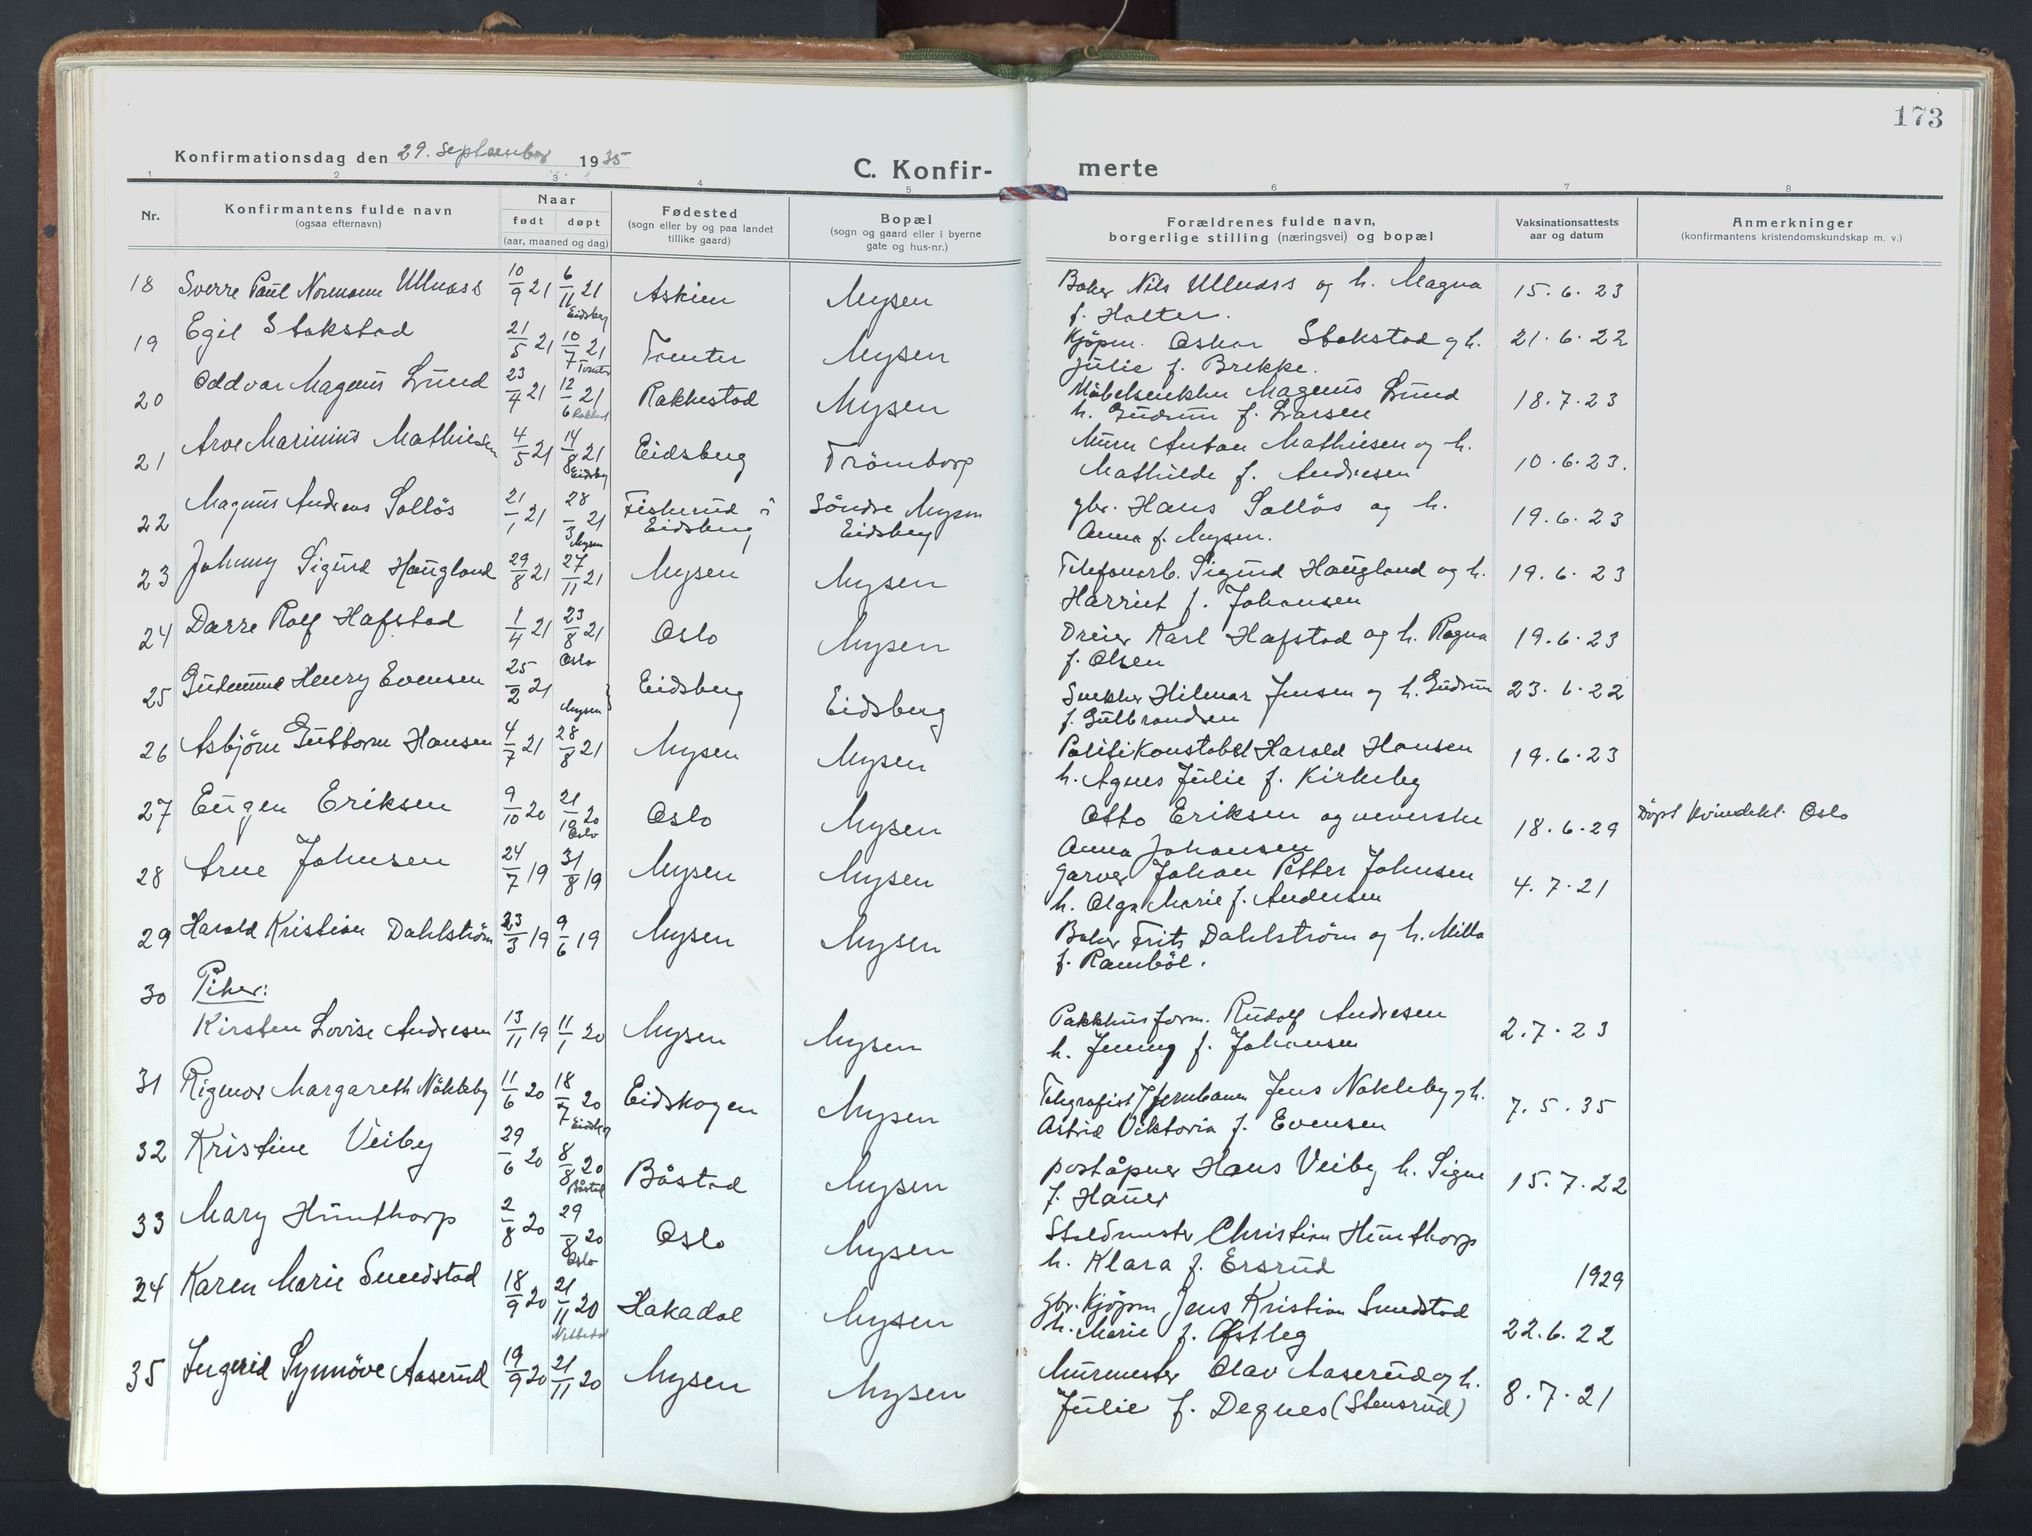 173
Konfirmationsdag den 29. september 1935
C. Konfir- merte
1 2 3 4 5 6 7 8
Nr.
Konfirmantens fulde navn
(ogsaa efternavn)
Naar
født døpt
(aar, maaned og dag)
Fødested
(sogn eller by og paa landet
tillike gaard)
Bopæl
(sogn og gaard eller i byerne
gate og hus-nr.)
Forældrenes fulde navn,
borgerlige stilling (næringsvei) og bopæl
Vaksinationsattests
aar og datum
Anmerkninger
(konfirmantens kristendomskundskap m. v.)
18 Sverre Paul Normann Ullnæss 10/9 21 6/11 21 Eidsberg Askim Mysen Baker Nils Ullnæss og h. Magna
f. Holter. 15.6.23
19 Egil Stokstad 21/5 21 10/7 21 Tomter Tomter Mysen Kjöpm. Oskar Stokstad og h.
Julie f. Brekke. 21.6.22
20 Oddvar Magnus Lund 23/4 21 12/6 21 Rakkest Rakkestad Mysen Möbelsnekker Magnus Lund
h. Gudrun f. Larsen 18.7.23
21 Arve Marinius Mathiesen 4/5 21 14/8 21 Eidsbg Eidsberg Trømborg Murer Anton Mathiesen og h.
Mathilde f. Andresen 10.6.23.
22 Magnus Andreas Sollös 21/1 21 28/3 21 Mysen Fiskerud i
Eidsberg Söndre Mysen
Eidsberg gbr. Hans Sollös og h.
Anna f. Mysen. 19.6.23
23 Johnny Sigurd Haugland 29/8 21 27/11 21 Mysen Mysen Telefonarb. Sigurd Haugland og h.
Harriet f. Johansen 19.6.23
24 Dærre Rolf Hafstad 1/4 21 23/8 21 Oslo Oslo Mysen Dreier Karl Hafstad og h. Ragna
f. Olsen 19.6.23
25 Gudmund Henry Evensen 25/2 21 Mysen Eidsberg Eidsberg Snekker Hilmar Jensen og h. Gudrun
f. Gulbrandsen 23.6.22
26 Asbjörn Guttorm Hansen 4/7 21 28/8 21 Mysen Mysen Politikonstabel Harald Hansen
h. Agnes Julie f. Kirkeby 19.6.23
27 Eugen Eriksen 9/10 20 21/10 20 Oslo Oslo Mysen Otto Eriksen og veverske
Anna Johansen 18.6.29 Döpt Kvindekl. Oslo
28 Arne Johnsen 24/7 19 31/8 19 Mysen Mysen Garver Johan Petter Johnsen
h. Olga Marie f. Andersen 4.7.21
29 Harald Kristian Dahlström 23/3 19 9/6 19 Mysen Mysen Baker Frits Dahlström og h. Milla
f. Ramböl.
30 Piker:
Kirsten Lovise Andresen 13/11 19 11/1 20 Mysen Mysen Pakkhusform. Rudolf Andresen
h. Jenny f. Johansen 2.7.23
31 Rigmor Margareth Nökleby 11/6 20 18/7 20 Eidskog Eidskogen Mysen Telegrafist Jernbanen Jens Nökleby og h.
Astrid Viktoria f. Evensen 7.5.35
32 Kristine Veiby 29/6 20 8/8 20 Båstad Båstad Mysen poståpner Hans Veiby h. Signe
f. Hauer 15.7.22
33 Mary Hunthorp 2/8 20 29/8 20 Oslo Oslo Mysen Stallmester Christian Hunthorp
h. Klara f. Ersrud 1929
24 Karen Marie Sundstad 18/9 20 21/11 20 Nittedal Hakadal Mysen gbr. Kjöpm Jens Kristian Sundstad
h. Marie f. Østleg 22.6.22
35 Ingerid Synnöve Aaserud 19/9 20 21/11 20 Mysen Mysen Murmester Olav Aaserud og h.
Julie f. Degnes (Stensrud) 8.7.21